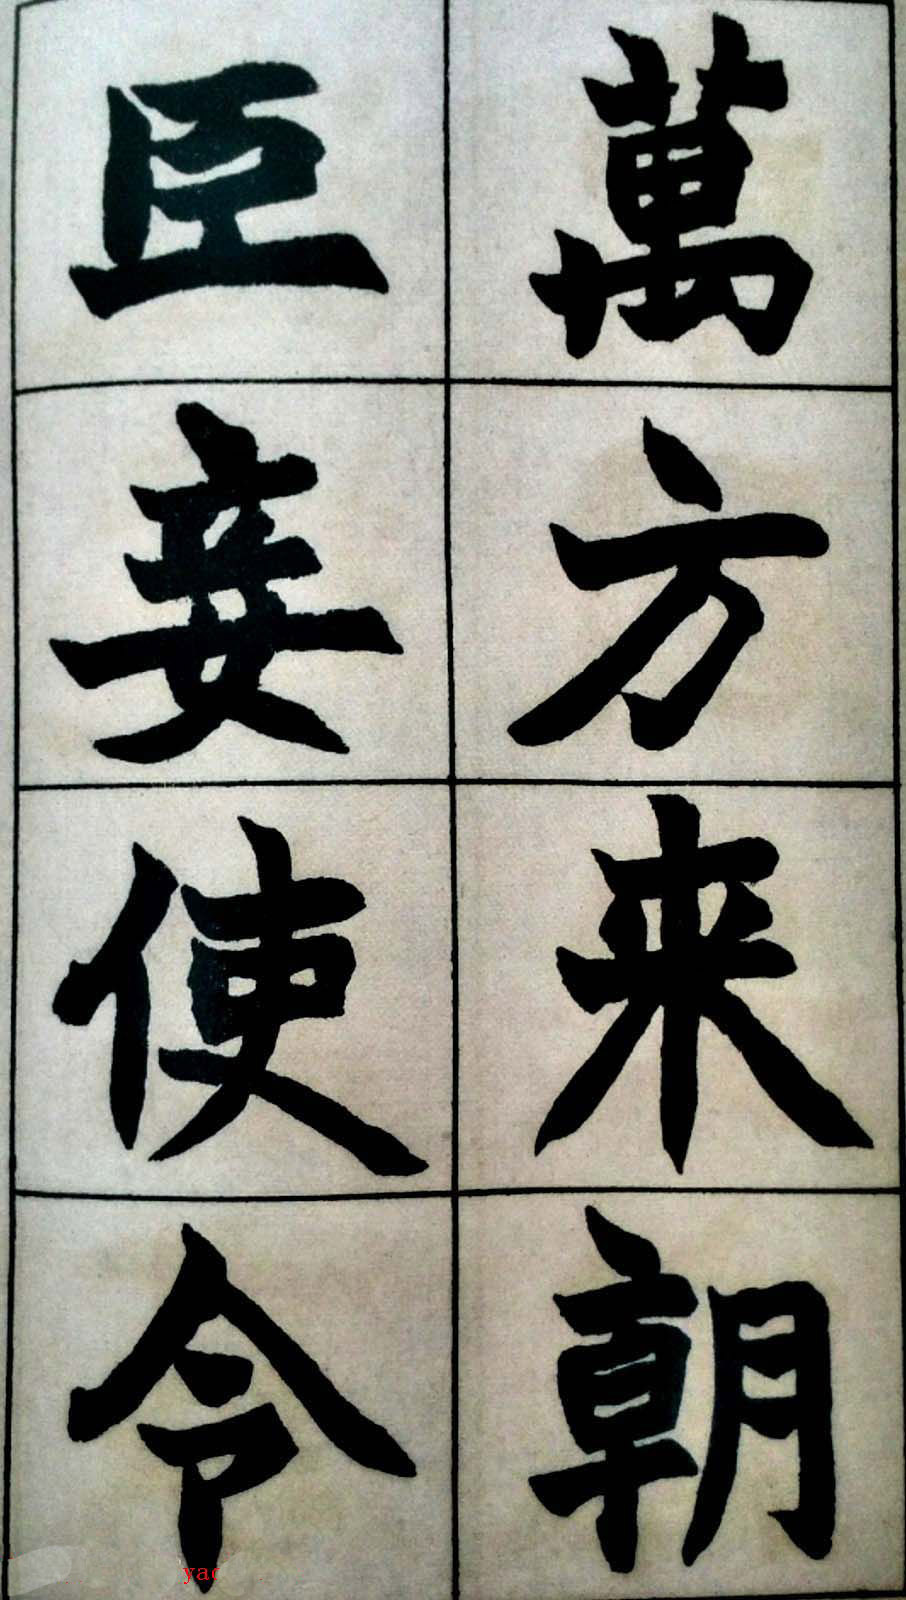 萬方来朝
臣妾使令
yac